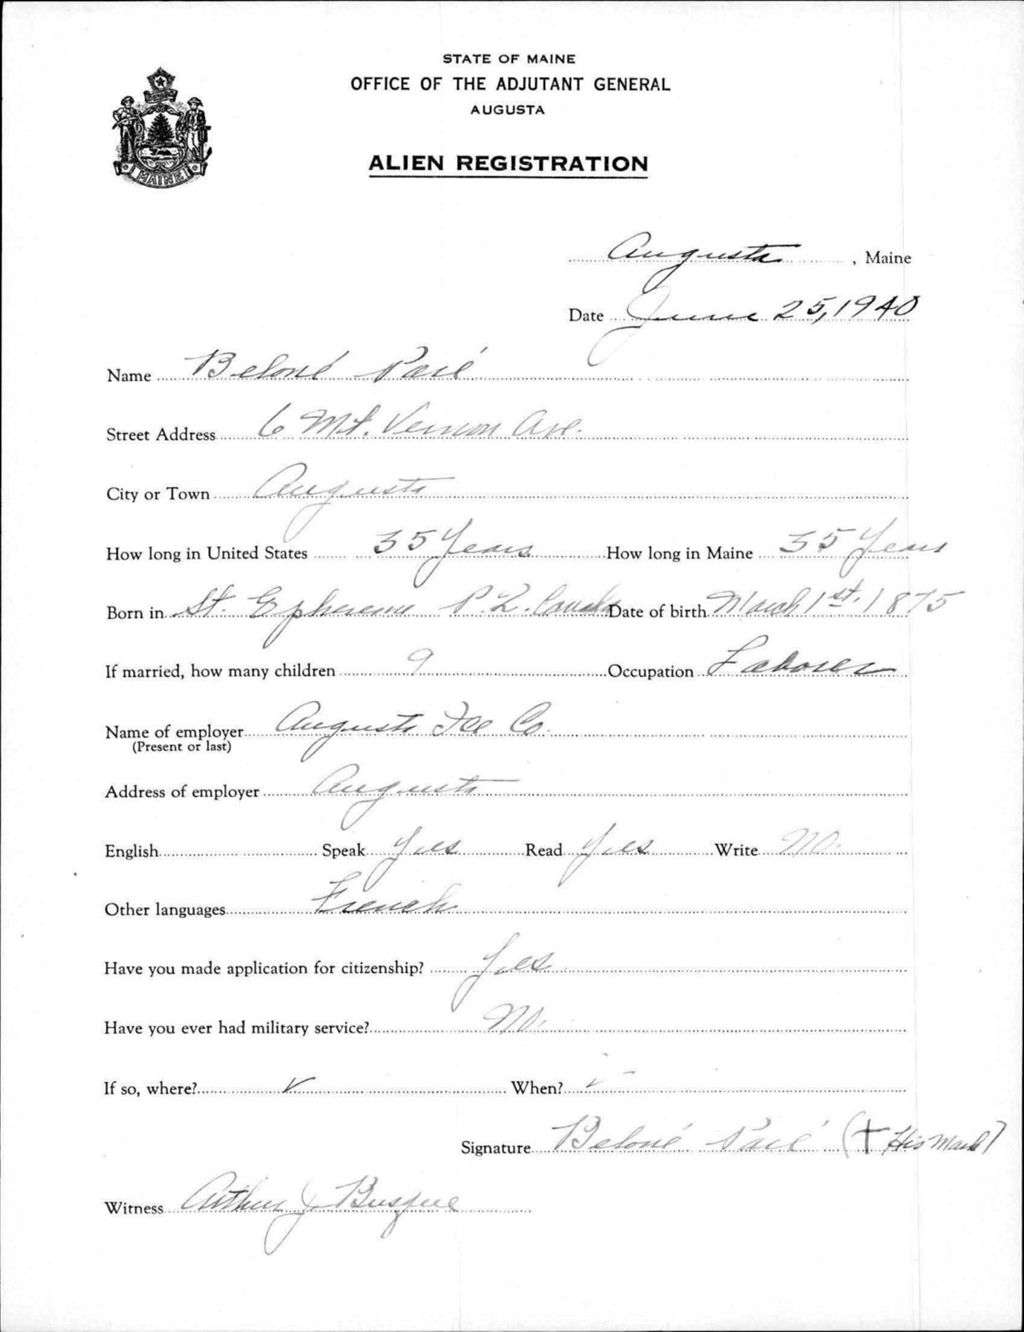 STATE OF MAINE
OFFICE OF THE ADJUTANT GENERAL
AUGUSTA
ALIEN REGISTRATION
MAINE
Augusta, Maine
Date June 25, 1940
Name Beloné Paré
Street Address 6 Mt. Vernon Ave.
City or Town Augusta
How long in United States 35 Years How long in Maine 35 Years
Born in St. Ephereme P.Q. Canada Date of birth March 1st. 1875
If married, how many children 9 Occupation Laborer
Name of employer Augusta Ice Co.
(Present or last)
Address of employer Augusta
English Speak Yes Read Yes Write No.
Other languages French
Have you made application for citizenship? Yes
Have you ever had military service? No.
If so, where? ✓ When? ✓
Signature Beloné Paré (+ His Mark)
Witness Arthur J. Busque